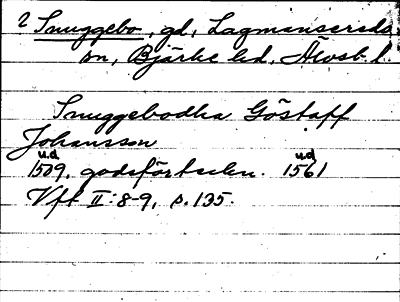 2 Snuggebo, gd, Lagmansereds
sn, Bjärke hd, Älvsb. l.
Snuggebodha Göstaff
Johansson
u.d u.d
1509, godsförteckn. 1561
Vft II:8-9, s. 135.